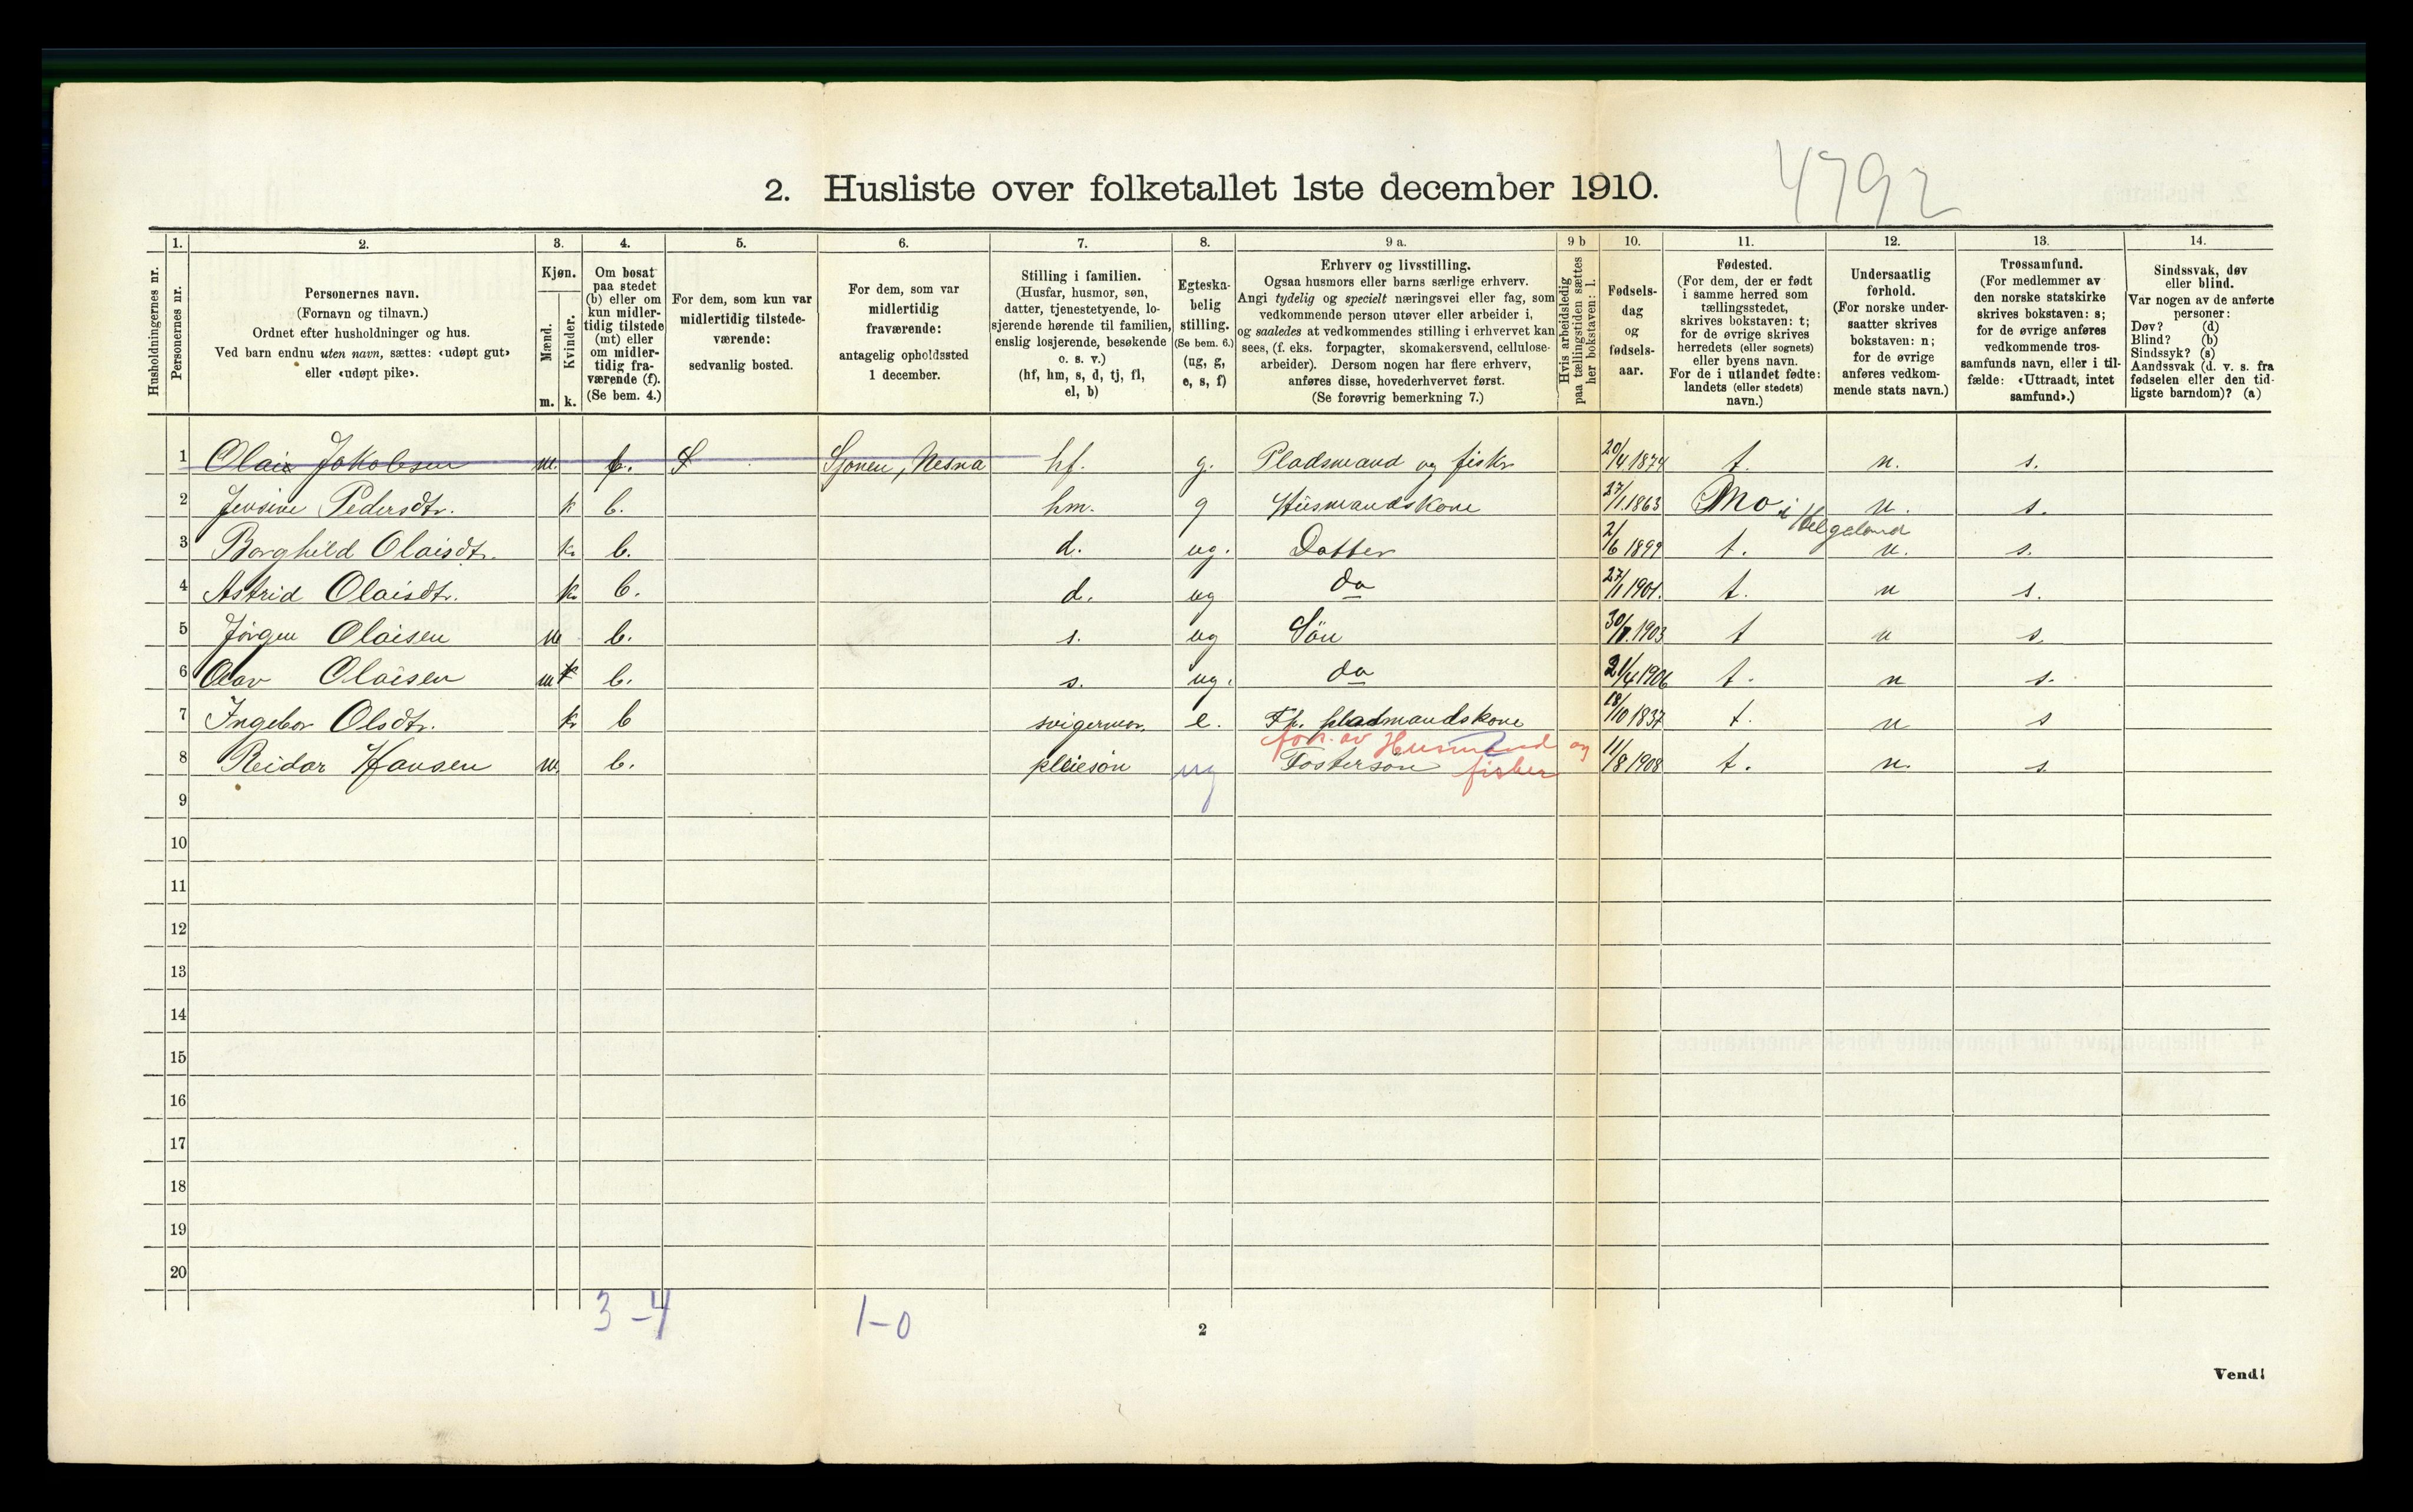 4792
2. Husliste over folketallet 1ste december 1910.
1. 2. 3. 4. 5. 6. 7. 8. 9 a. 9 b 10. 11. 12. 13. 14.
Husholdningernes nr.
Personernes nr.
Personernes navn.
(Fornavn og tilnavn.)
Ordnet efter husholdninger og hus.
Ved barn endnu uten navn, sættes: «udøpt gut»
eller «udøpt pike».
Kjøn.
Mænd.
Kvinder.
m. k.
Om bosat
paa stedet
(b) eller om
kun midler-
tidig tilstede
(mt) eller
om midler-
tidig fra-
værende (f).
(Se bem. 4.)
For dem, som kun var
midlertidig tilstede-
værende:
sedvanlig bosted.
For dem, som var
midlertidig
fraværende:
antagelig opholdssted
1 december.
Stilling i familien.
(Husfar, husmor, søn,
datter, tjenestetyende, lo-
sjerende hørende til familien,
enslig losjerende, besøkende
o. s. v.)
(hf, hm, s, d, tj, fl,
el, b)
Egteska-
belig
stilling.
(Se bem. 6.)
(ug, g,
e, s, f)
Erhverv og livsstilling.
Ogsaa husmors eller barns særlige erhverv.
Angi tydelig og specielt næringsvei eller fag, som
vedkommende person utøver eller arbeider i,
og saaledes at vedkommendes stilling i erhvervet kan
sees, (f. eks. forpagter, skomakersvend, cellulose-
arbeider). Dersom nogen har flere erhverv,
anføres disse, hovederhvervet først.
(Se forøvrig bemerkning 7.)
Hvis arbeidsledig
paa tællingstiden sættes
her bokstaven: l.
Fødsels-
dag
og
fødsels-
aar.
Fødested.
(For dem, der er født
i samme herred som
tællingsstedet,
skrives bokstaven: t;
for de øvrige skrives
herredets (eller sognets)
eller byens navn.
For de i utlandet fødte:
landets (eller stedets)
navn.)
Undersaatlig
forhold.
(For norske under-
saatter skrives
bokstaven: n;
for de øvrige
anføres vedkom-
mende stats navn.)
Trossamfund.
(For medlemmer av
den norske statskirke
skrives bokstaven: s;
for de øvrige anføres
vedkommende tros-
samfunds navn, eller i til-
fælde: «Uttraadt, intet
samfund».)
Sindssvak, døv
eller blind.
Var nogen av de anførte
personer:
Døv? (d)
Blind? (b)
Sindssyk? (s)
Aandssvak (d. v. s. fra
fødselen eller den tid-
ligste barndom)? (a)
1 Olais Jakobsen m. f. Sjonen, Nesna hf. g. Pladsmand og fisker 20/4 1874 t. n. s.
2 Jensine Pedersdtr. k b. hm. g Husmandskone 27/1.1863 Mo i Helgeland n. s.
3 Borghild Olaisdtr. k. b. d. ug. Datter 2/6 1899 t. n. s.
4 Astrid Olaisdtr. k. b. d. ug do 27/1 1901. t. n s.
5 Jörgen Olaisen m b. s. ug Sön 30/1.1903 t n s
6 Olav Olaisen m b. s. ug. do 21/4 1906 t. n s.
7 Ingebor Olsdtr. k b svigermor. e. Fh. pladmandskone 18/10 1837 t. n s
for. av Husmand og
8 Reidar Hansen m. b. pleiesön ug Fostersön fisker 11/8 1908 t. n. s.
9
10
11
12
13
14
15
16
17
18
19
20
3-4 1-0
2
Vend!